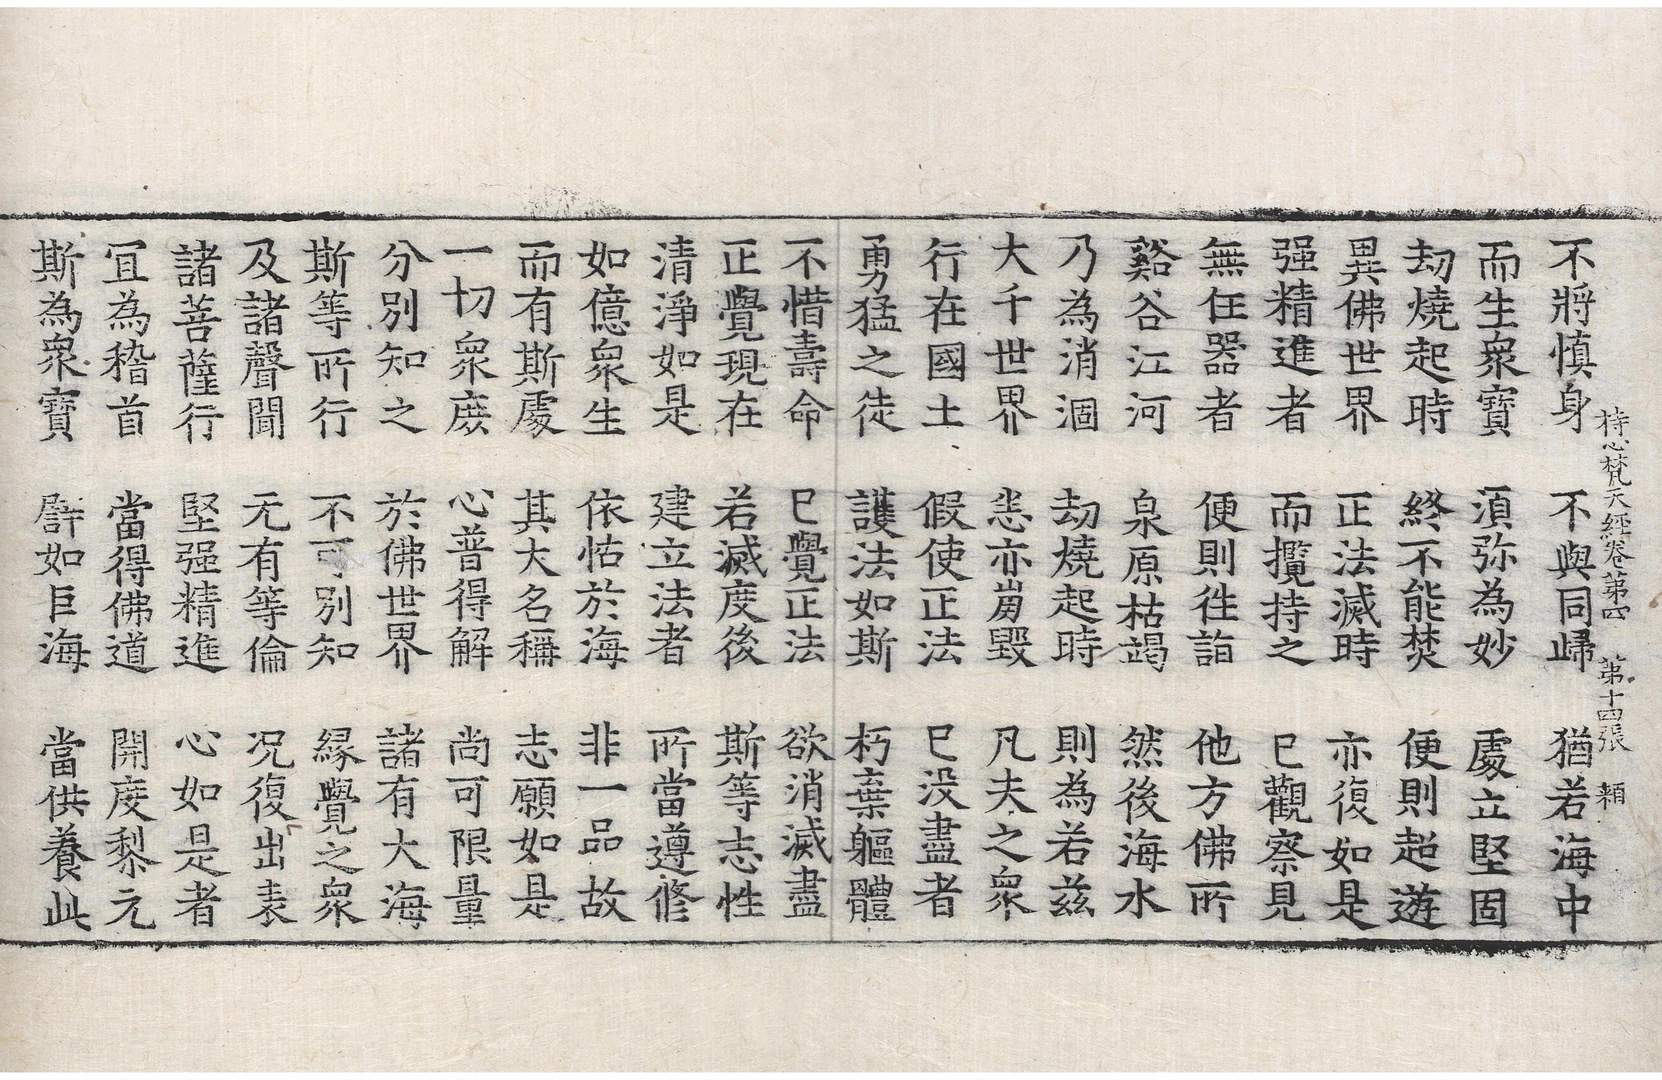 持心梵天經卷第四 第十四張 頼
不將慎身 不與同歸 猶若海中
而生衆寶 湏弥為妙 處立堅固
劫燒起時 終不能焚 便則超遊
異佛世界 正法滅時 亦復如是
强精進者 而攬持之 已觀察見
無任器者 便則徃詣 他方佛所
谿谷江河 泉原枯竭 然後海水
乃為消涸 劫燒起時 則為若兹
大千世界 恙亦崩毀 凡夫之衆
行在國土 假使正法 已没盡者
勇猛之徒 護法如斯 朽棄軀體
不惜壽命 已覺正法 欲消滅盡
正覺現在 若滅度後 斯等志性
清淨如是 建立法者 所當遵修
如億衆生 依怙於海 非一品故
而有斯處 其大名稱 志願如是
一切衆庶 心普得解 尚可限量
分別知之 於佛世界 諸有大海
斯等所行 不可別知 縁覺之衆
及諸聲聞 无有等倫 况復出表
諸菩薩行 堅强精進 心如是者
冝為稽首 當得佛道 開度黎元
斯為衆寶 譬如巨海 當供養此